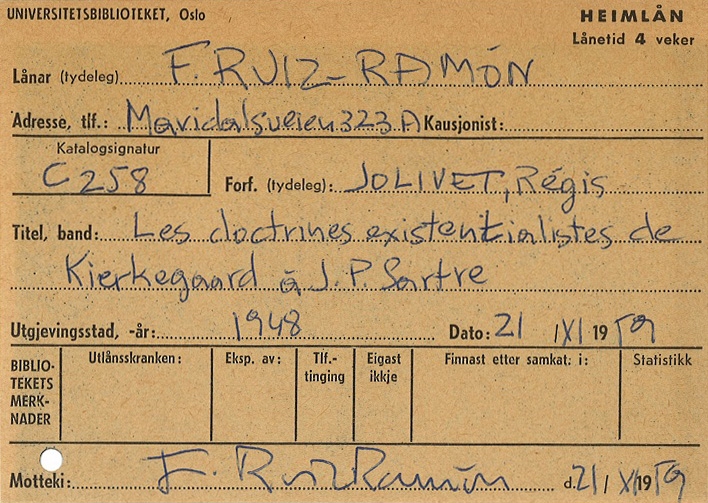 UNIVERSITETSBIBLIOTEKET, Oslo
HEIMLÅN
Lånetid 4 veker
Lånar (tydeleg) F. RUIZ-RAMÓN
Adresse, tlf.: Maridalsveien 323 A Kausjonist:
Katalogsignatur
C 258
Forf. (tydeleg): JOLIVET, Régis
Titel, band: Les doctrines existentialistes de
Kierkegaard à J. P. Sartre
Utgjevingsstad, -år: 1948 Dato: 21 / XI 19 59
BIBLIO-
TEKETS
MERK-
NADER
Utlånsskranken:
Eksp. av:
Tlf.-
tinging
Eigast
ikkje
Finnast etter samkat. i:
Statistikk
Motteki: F. Ruiz Ramón d. 21 / XI 19 59